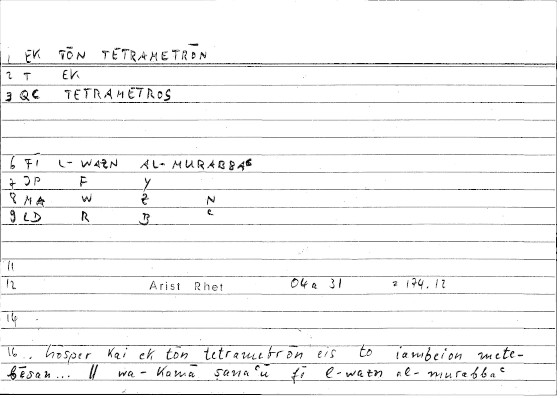 1 EK TŌN TETRAMETRŌN
2 T EK
3 QC TETRAMETROS
6 FĪ L-WAZN AL-MURABBAʿ
7 JP F Y
8 MA W Z N
9 LD R B ʿ
11
12 Arist Rhet 04a 31 = 174.12
14
16 .. hōsper kai ek tōn tetrametrōn eis to iambeion mete-
bēsan... // wa-kamā ṣanaʿū fī l-wazn al-murabbaʿ